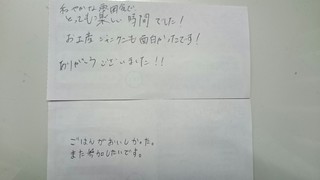 和やかな雰囲気で
とっても楽しい時間でした！
お土産ジャンケンも面白かったです！
ありがとうございました！！
ごはんがおいしかった。
また参加したいです。